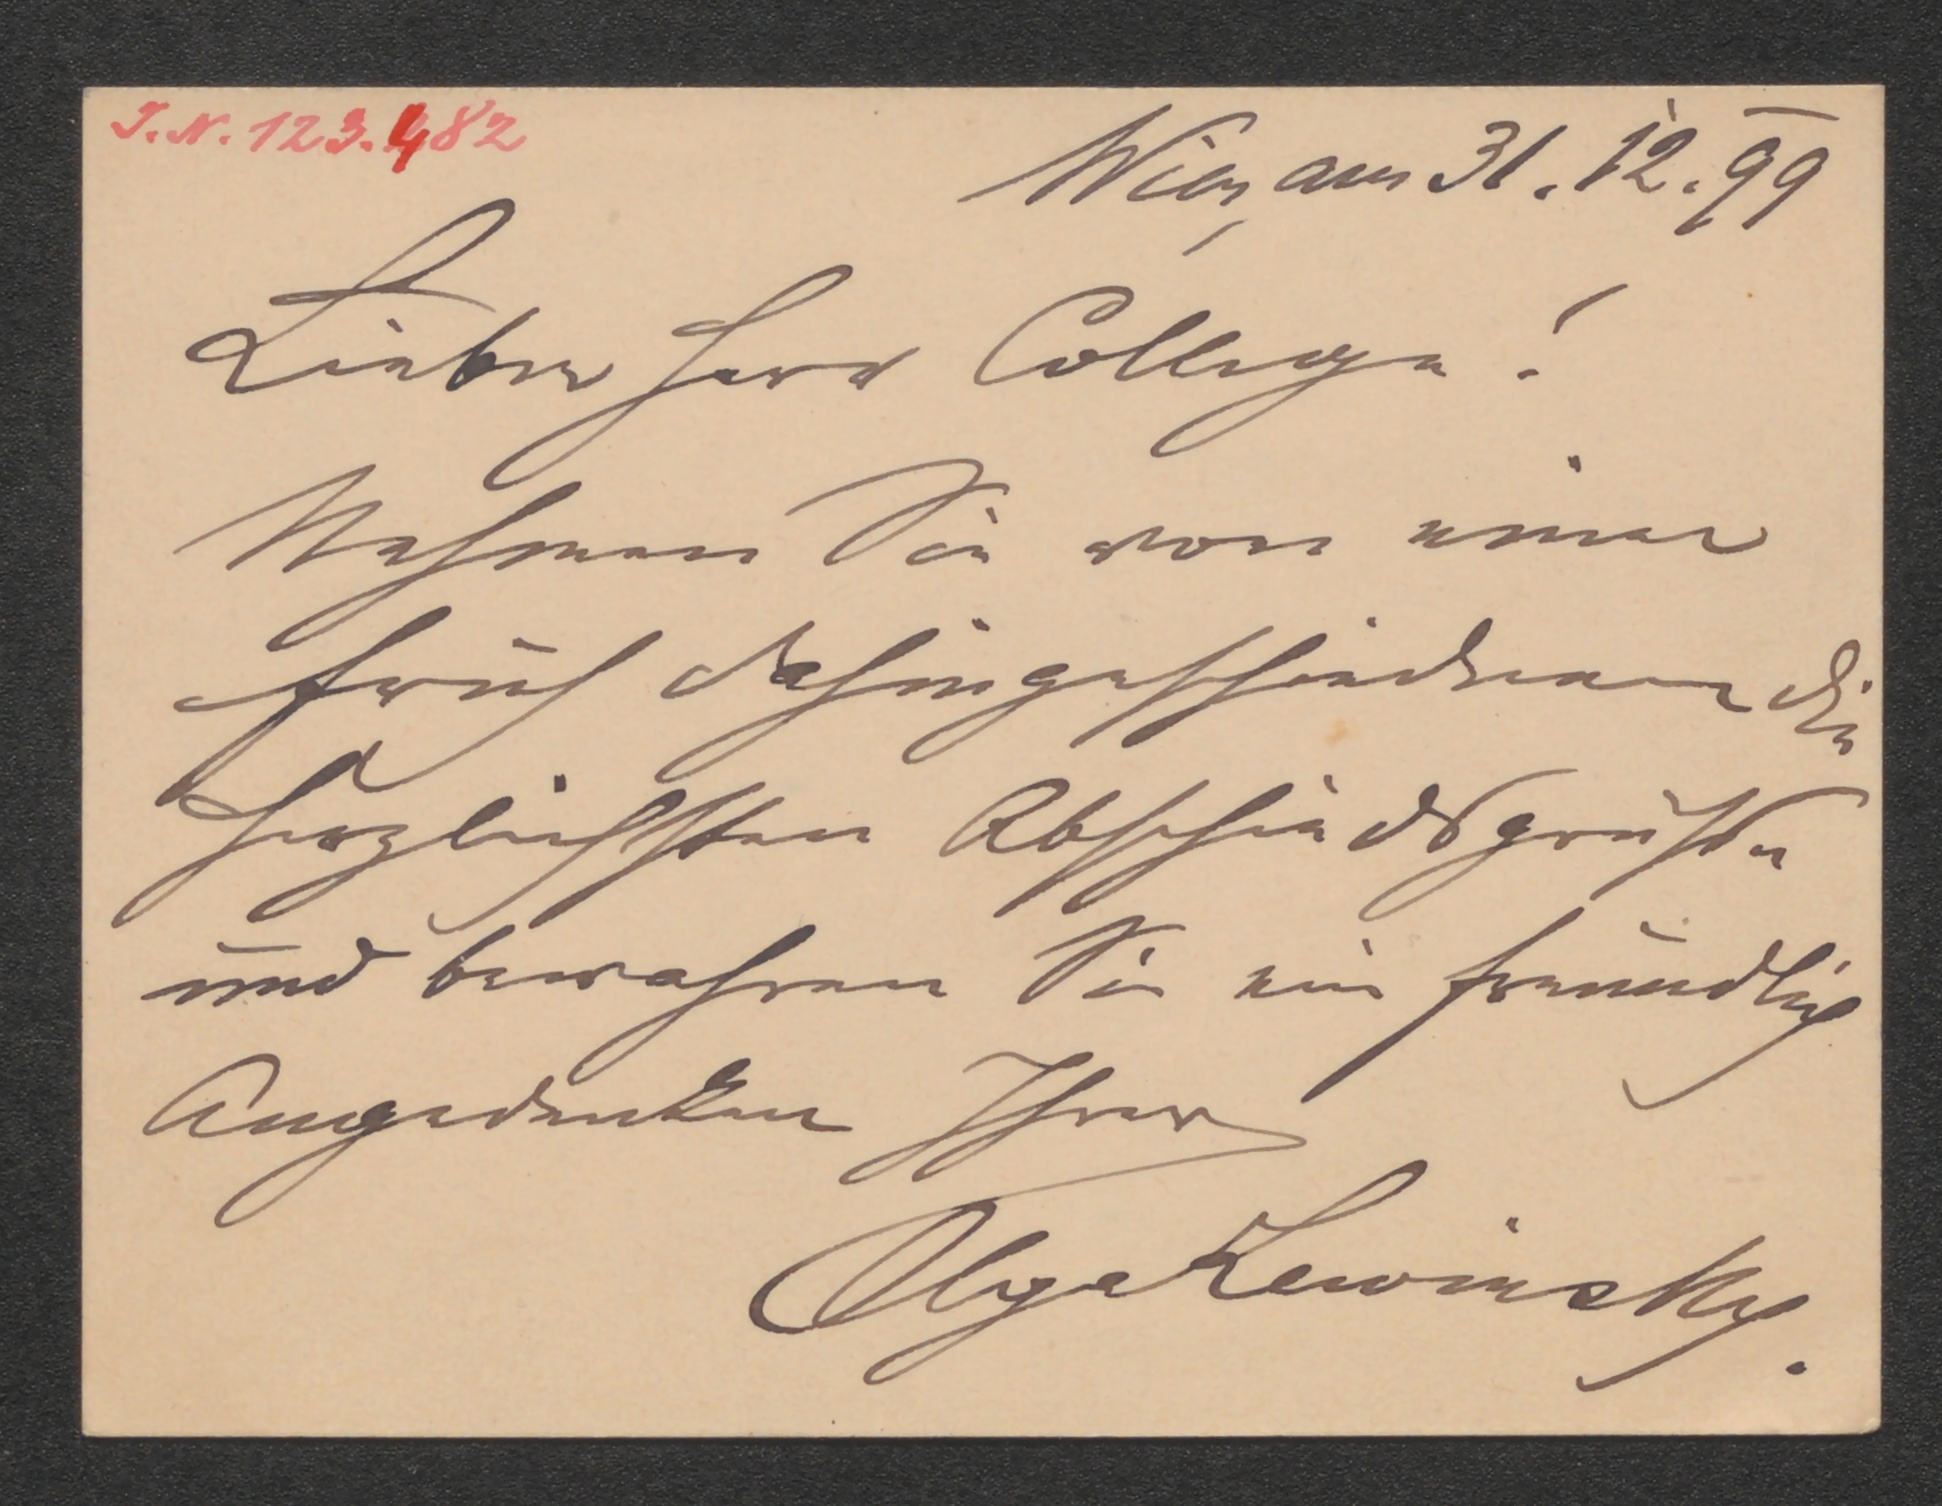 J.N. 123.482
Wien, am 31. 12. 99
Lieber Herr College!
Nehmen Sie von einer
früh dahingeschiedenen die
herzlichsten Abschiedsgrüße
und bewahren Sie ein freundlich
Angedenken Ihrer
Olga Lewinsky.